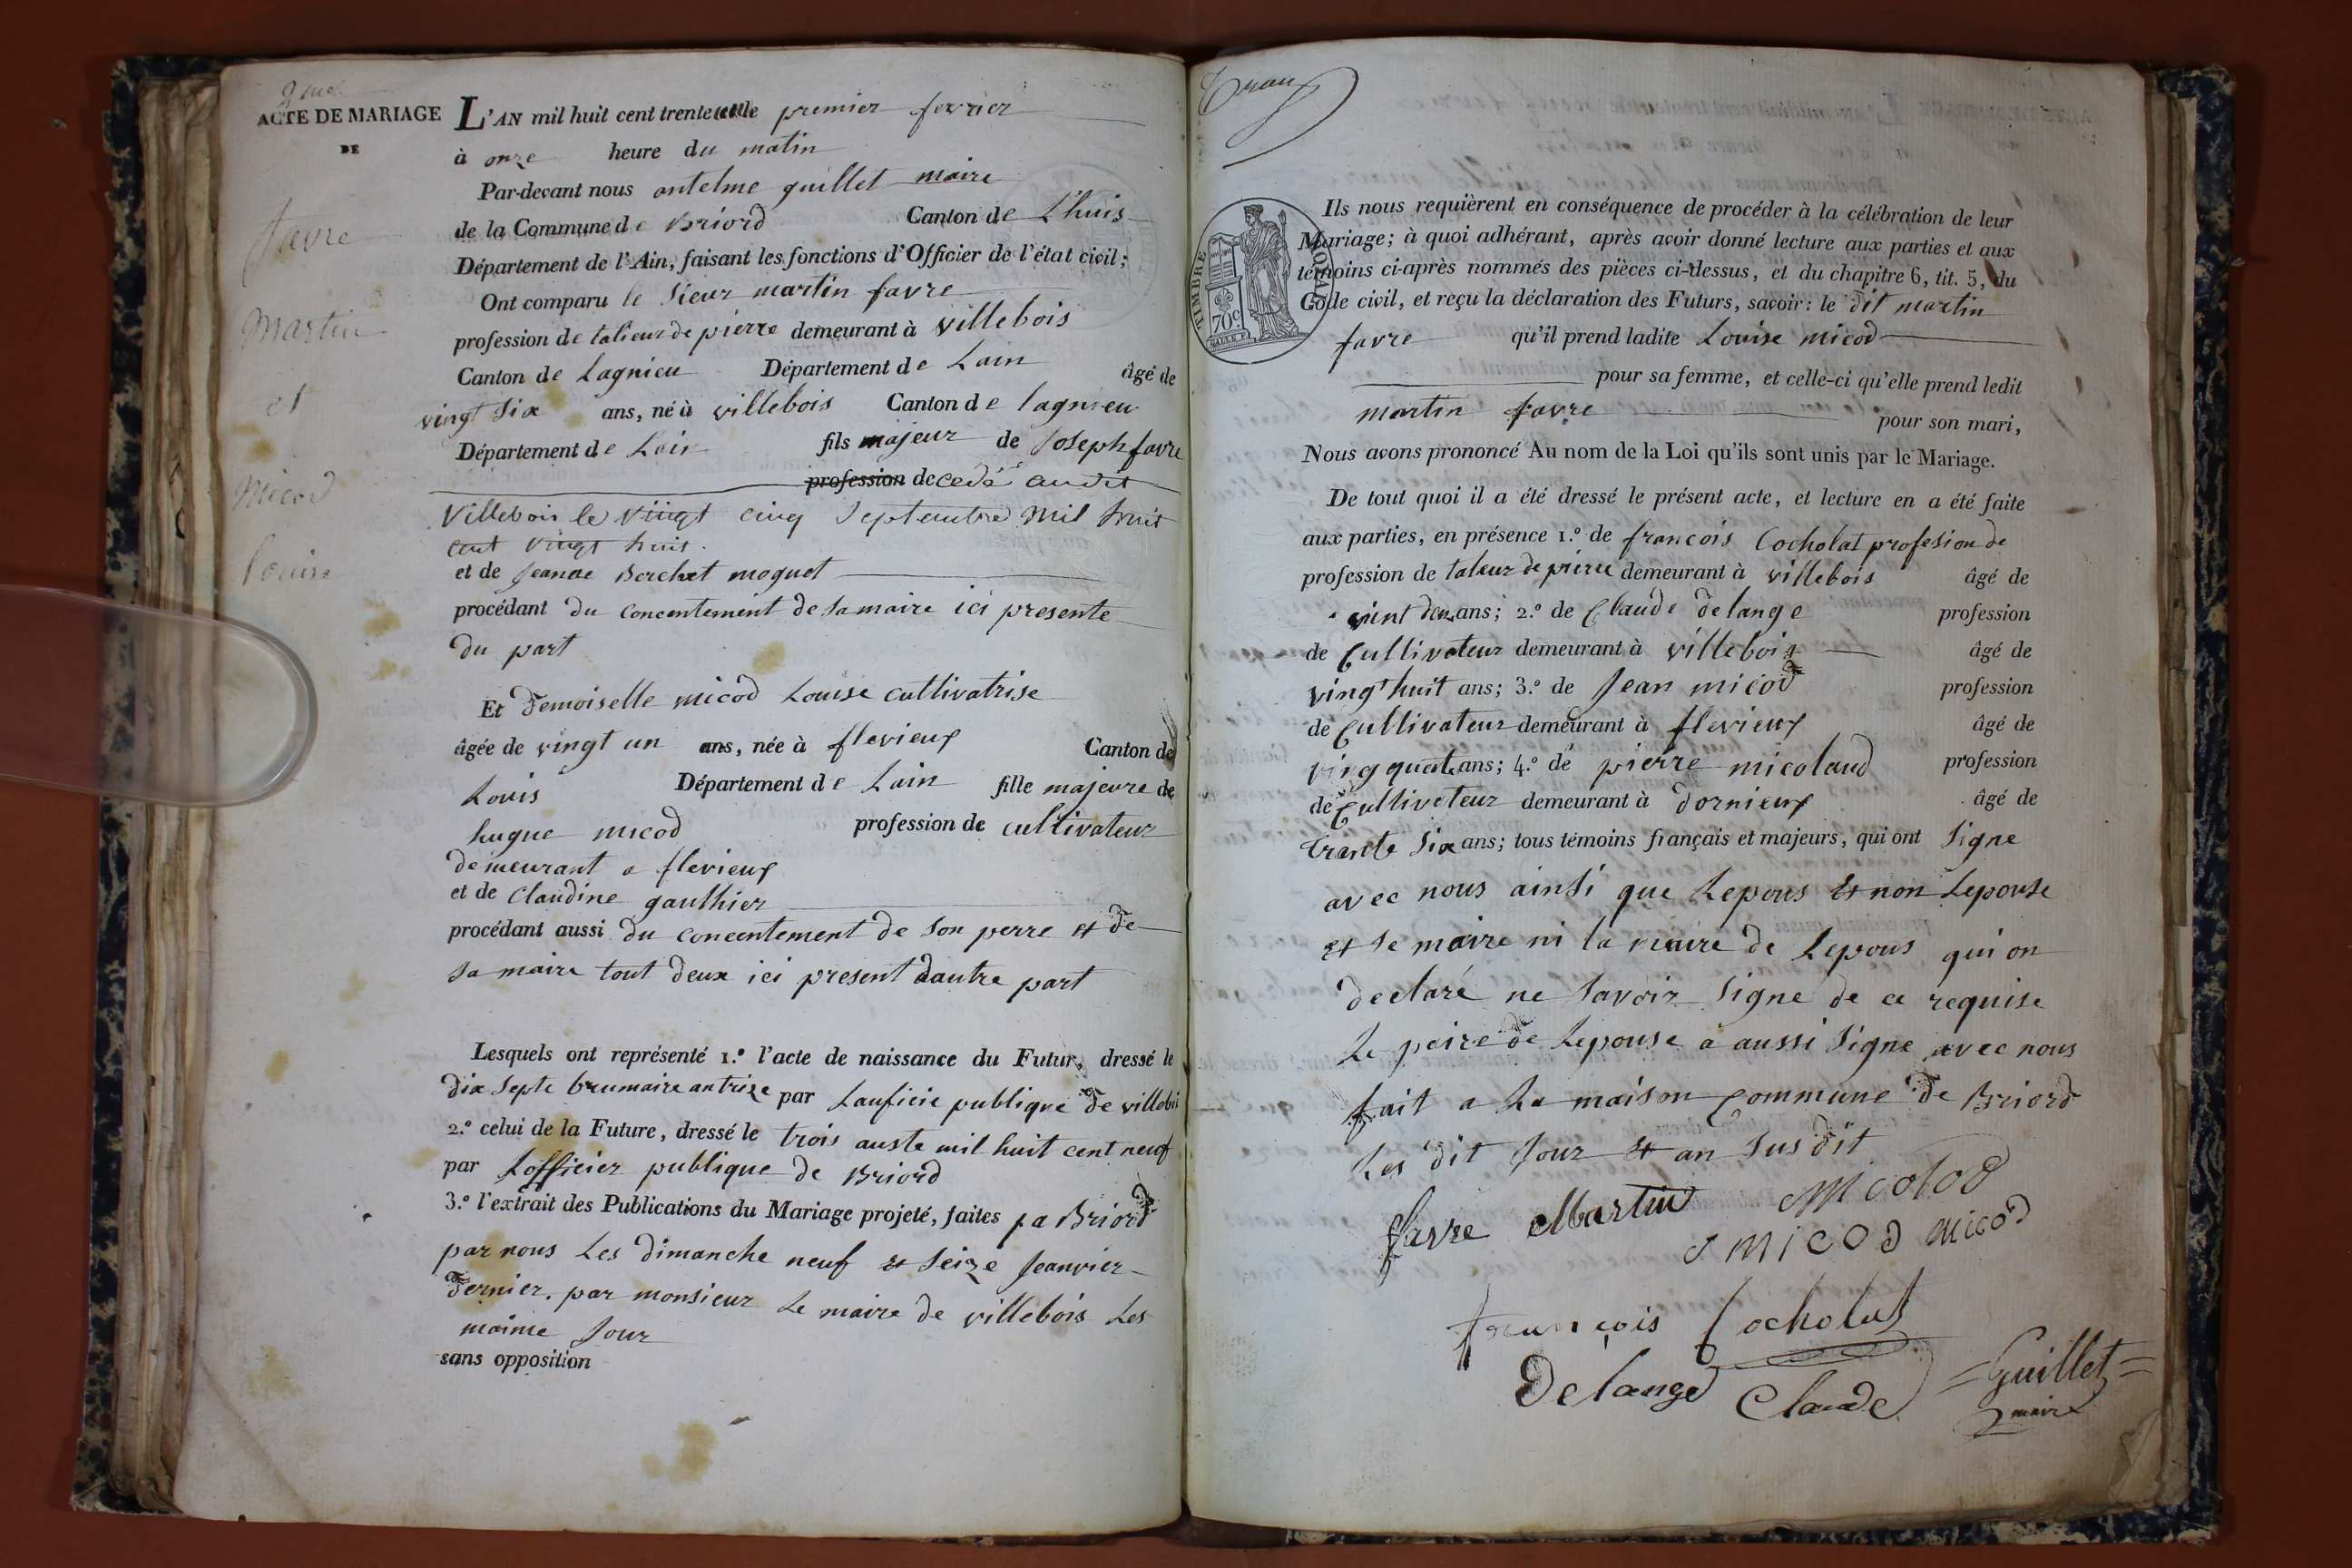 2me
ACTE DE MARIAGE
DE
favre
Martin
et
Micod
louise
L'AN mil huit cent trente le premier fevrier
à onze heure du matin
Par-devant nous antelme guillet maire
de la Commune de Briord Canton de Lhuis
Département de l'Ain, faisant les fonctions d'Officier de l'état civil;
Ont comparu le Sieur martin favre
profession de talieur de pierre demeurant à villebois
Canton de Lagnieu Département de Lain âgé de
vingt Six ans, né à villebois Canton de lagnieu
Département de Lain fils majeur de Joseph favre
profession de cedé audit
Villebois le vingt cinq Septembre mil huit
cent vingt huit.
et de Jeanne Berchet moguet
procédant du concentement de sa maire ici presente
du part
Et Demoiselle micod Louise cultivatrise
âgée de vingt un ans, née à flevieux Canton de
Louis Département de Lain fille majeure de
hugue micod profession de cultivateur
demeurant a flevieux
et de Claudine gauthier
procédant aussi du concentement de son perre et de
sa maire tout deux ici present dautre part
Lesquels ont représenté 1.° l'acte de naissance du Futur, dressé le
dix septe brumaire an trize par Lauficie publique de villebois
2.° celui de la Future, dressé le trois auste mil huit cent neuf
par Lofficier publique de Briord
3.° l'extrait des Publications du Mariage projeté, faites a Briord
par nous Les dimanche neuf et Seize Jeanvier
Dernier. par monsieur Le maire de villebois Les
maime Jour
sans opposition
TIMBRE ROYAL
70c
Ils nous requièrent en conséquence de procéder à la célébration de leur
Mariage; à quoi adhérant, après avoir donné lecture aux parties et aux
témoins ci-après nommés des pièces ci-dessus, et du chapitre 6, tit. 5, du
Code civil, et reçu la déclaration des Futurs, savoir: le dit martin
favre qu'il prend ladite Louise micod
pour sa femme, et celle-ci qu'elle prend ledit
martin favre pour son mari,
Nous avons prononcé Au nom de la Loi qu'ils sont unis par le Mariage.
De tout quoi il a été dressé le présent acte, et lecture en a été faite
aux parties, en présence 1.° de francois Cocholat profesion de
profession de talieur de pierre demeurant à villebois âgé de
vint deux ans; 2.° de Claude delange profession
de Cultivateur demeurant à villebois âgé de
vingt huit ans; 3.° de Jean micod profession
de Cultivateur demeurant à flevieux âgé de
ving quatre ans; 4.° de pierre micolaud profession
de Cultivateur demeurant à dornieux âgé de
trante Six ans; tous témoins français et majeurs, qui ont Signe
avec nous ainsi que Lepous et non Lepouse
et Se maire ni la maire de Lepous qui on
declaré ne Savoir Signe de ce requise
Le peire de Lepouse a aussi Signe avec nous
fait a La maison Commune de Briord
Les dit Jour et an Sus dit
favre Martin Micolod
J MICOD MICOD
françois Cocholat
Delange Claude
Guillet
maire